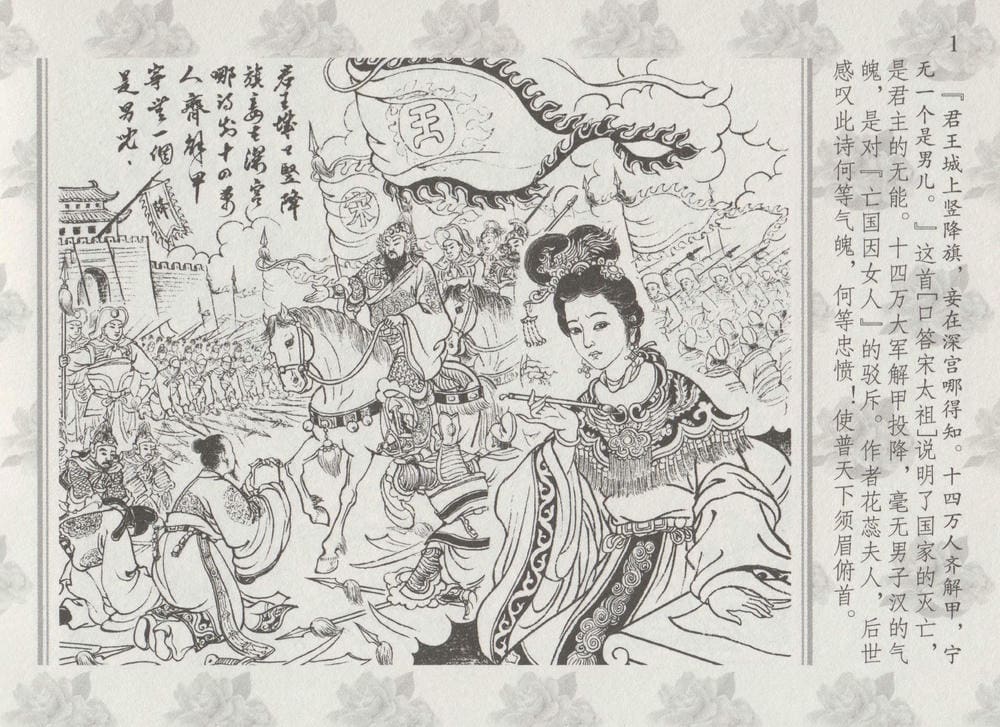 1
『君王城上竖降旗，妾在深宫哪得知。十四万人齐解甲，宁
无一个是男儿。』这首[口答宋太祖]说明了国家的灭亡，
是君主的无能。十四万大军解甲投降，毫无男子汉的气
魄，是对『亡国因女人』的驳斥。作者花蕊夫人，后世
感叹此诗何等气魄，何等忠愤！使普天下须眉俯首。
君王城上竪降
旗妾在深宮
哪得知十四萬
人齊解甲
寧無一個
是男児、
王
宋
降